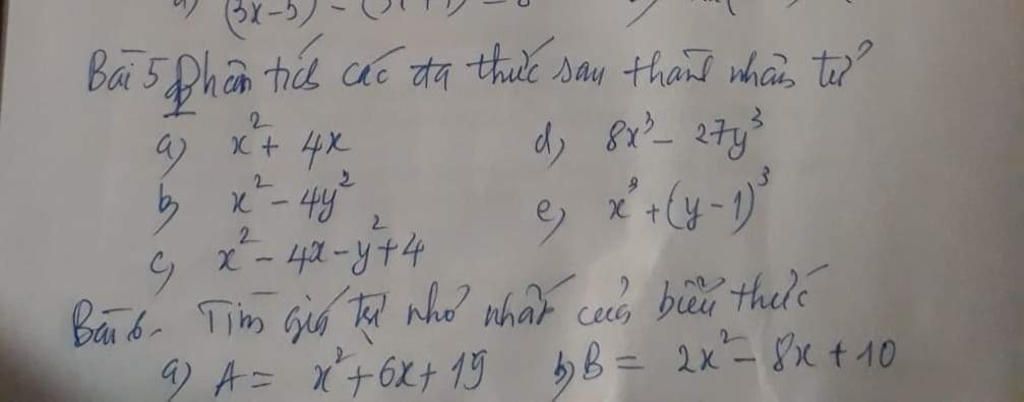 (3x-5)
Bài 5 Phân tích các đa thức sau thành nhân tử
a) x² + 4x d) 8x³ - 27y³
b) x² - 4y² e) x³ + (y - 1)³
c) x² - 4x - y² + 4
Bài 6. Tìm giá trị nhỏ nhất của biểu thức
a) A = x² + 6x + 19 b) B = 2x² - 8x + 10